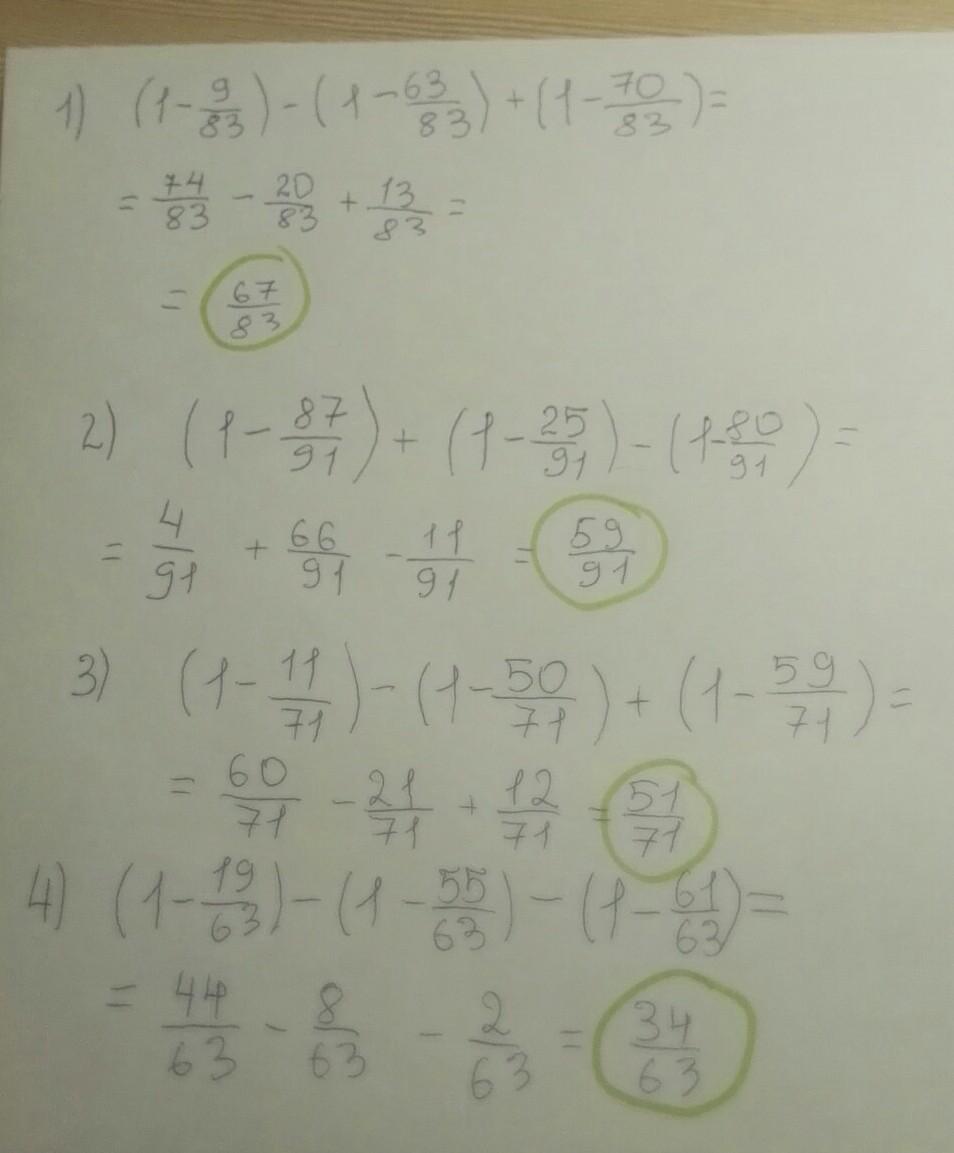 1) (1-9/83)-(1-63/83)+(1-70/83)=
=74/83-20/83+13/83=
=67/83
2) (1-87/91)+(1-25/91)-(1-80/91)=
=4/91+66/91-11/91=59/91
3) (1-11/71)-(1-50/71)+(1-59/71)=
=60/71-21/71+12/71=51/71
4) (1-19/63)-(1-55/63)-(1-61/63)=
=44/63-8/63-2/63=34/63